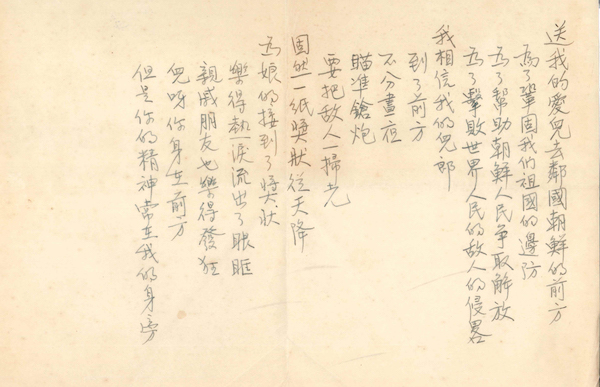 送我的愛兒去鄰國朝鮮的前方
為了鞏固我們祖國的邊防
為了幫助朝鮮人民爭取解放
為了擊敗世界人民的敵人的侵畧
我相信我的兒郎
到了前方
不分晝夜
瞄準鎗炮
要把敵人一掃光
固然一紙獎狀從天降
為娘的接到了獎狀
樂得熱淚流出了眼眶
親戚朋友也樂得發狂
兒呀你身在前方
但是你的精神常在我的身旁